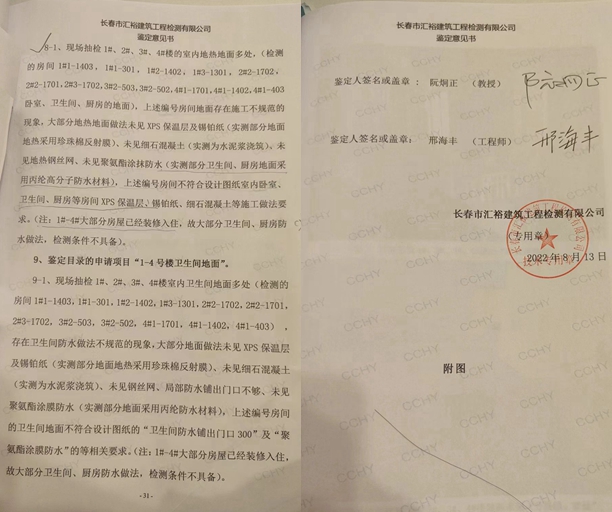 长春市汇裕建筑工程检测有限公司
鉴定意见书
8-1、现场抽检 1#、2#、3#、4#楼的室内地热地面多处,(检测
的房间 1#1-1403，1#1-301，1#2-1402，1#3-1301，2#2-1702、
2#2-1701,2#3-1702,3#2-503,3#2-502,4#1-1701,4#1-1402,4#1-403
卧室、卫生间、厨房的地面)，上述编号房间地面存在施工不规范的
现象，大部分地热地面做法未见 XPS 保温层及锡铂纸（实测部分地面
地热采用珍珠棉反射膜）、未见细石混凝土（实测为水泥浆浇筑）、未
见地热钢丝网、未见聚氨酯涂抹防水（实测部分卫生间、厨房地面采
用丙纶高分子防水材料），上述编号房间不符合设计图纸室内卧室、
卫生间、厨房等房间 XPS 保温层、锡铂纸、细石混凝土等施工做法要
求。（注：1#-4#大部分房屋已经装修入住，故大部分卫生间、厨房防
水做法，检测条件不具备）。
9、鉴定目录的申请项目“1-4 号楼卫生间地面”。
9-1、现场抽检 1#、2#、3#、4#楼室内卫生间地面多处（检测的
房间 1#1-1403，1#1-301，1#2-1402，1#3-1301，2#2-1702，2#2-1701，
2#3-1702，3#2-503，3#2-502，4#1-1701，4#1-1402，4#1-403），
存在卫生间防水做法不规范的现象，大部分地面做法未见 XPS 保温层
及锡铂纸（实测部分地面地热采用珍珠棉反射膜）、未见细石混凝土
（实测为水泥浆浇筑）、未见钢丝网、局部防水铺出门口不够、未见
聚氨酯涂膜防水（实测部分地面采用丙纶防水材料），上述编号房间
的卫生间地面不符合设计图纸的“卫生间防水铺出门口 300”及“聚
氨酯涂膜防水”的等相关要求。（注：1#-4#大部分房屋已经装修入住，
故大部分卫生间、厨房防水做法，检测条件不具备）。
- 31 -
长春市汇裕建筑工程检测有限公司
鉴定意见书
鉴定人签名或盖章：阮炯正 （教授） 阮炯正
鉴定人签名或盖章：邢海丰 （工程师） 邢海丰
长春市汇裕建筑工程检测有限公司
（专用章）
2022 年 8 月 13 日
附图
CCHY